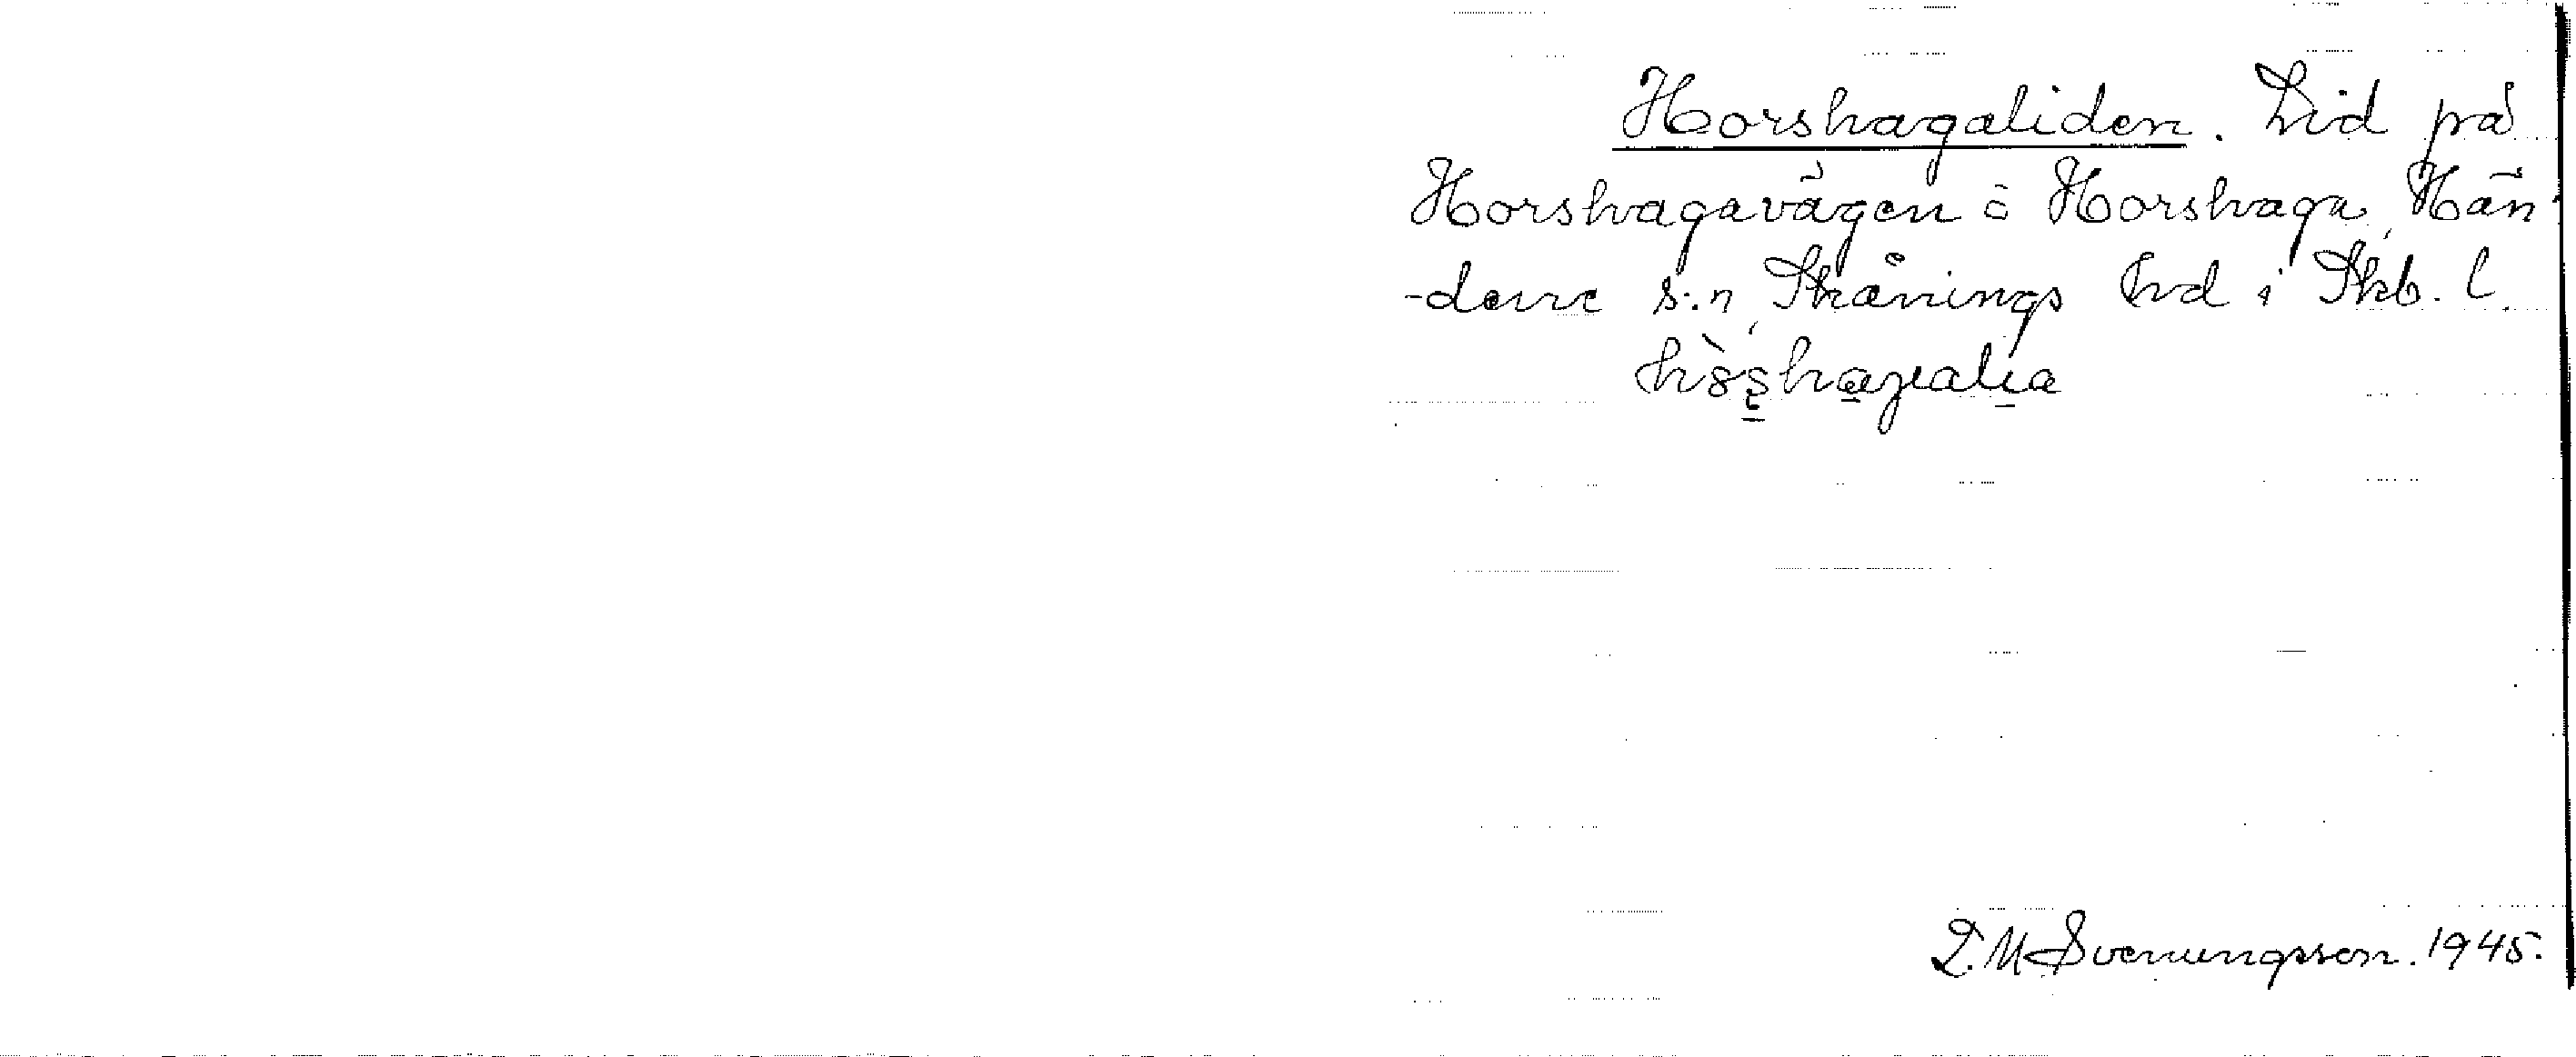 Horshagaliden. Lid på
Horshagavägen i Horshaga, Hän-
-dene s:n, Skånings hd i Skb. l.
L. M. Svenungsson. 1945.